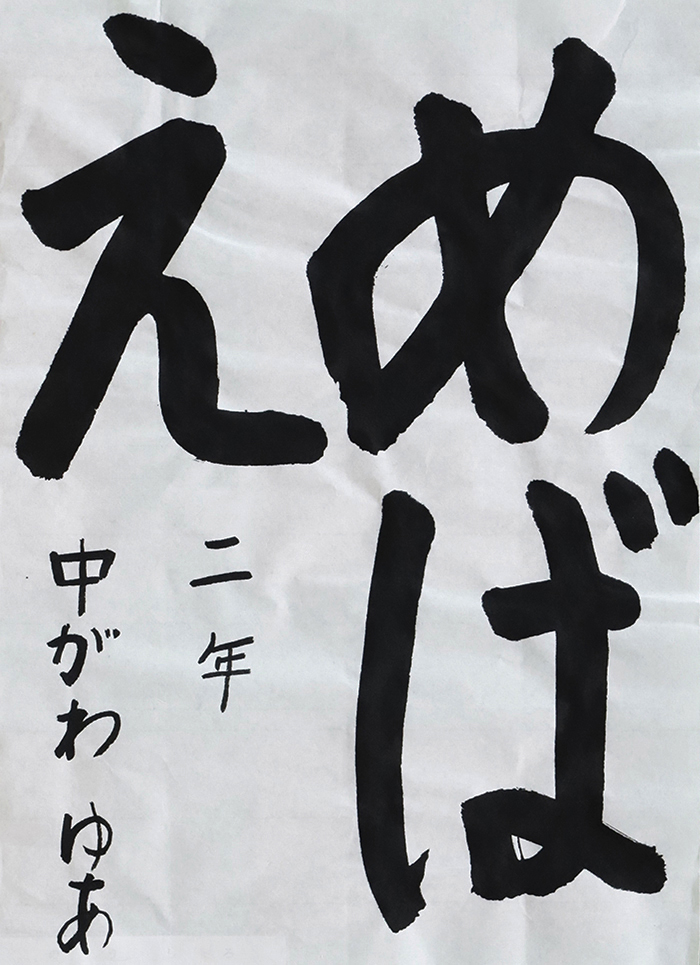 めば
え
二年
中がわ ゆあ